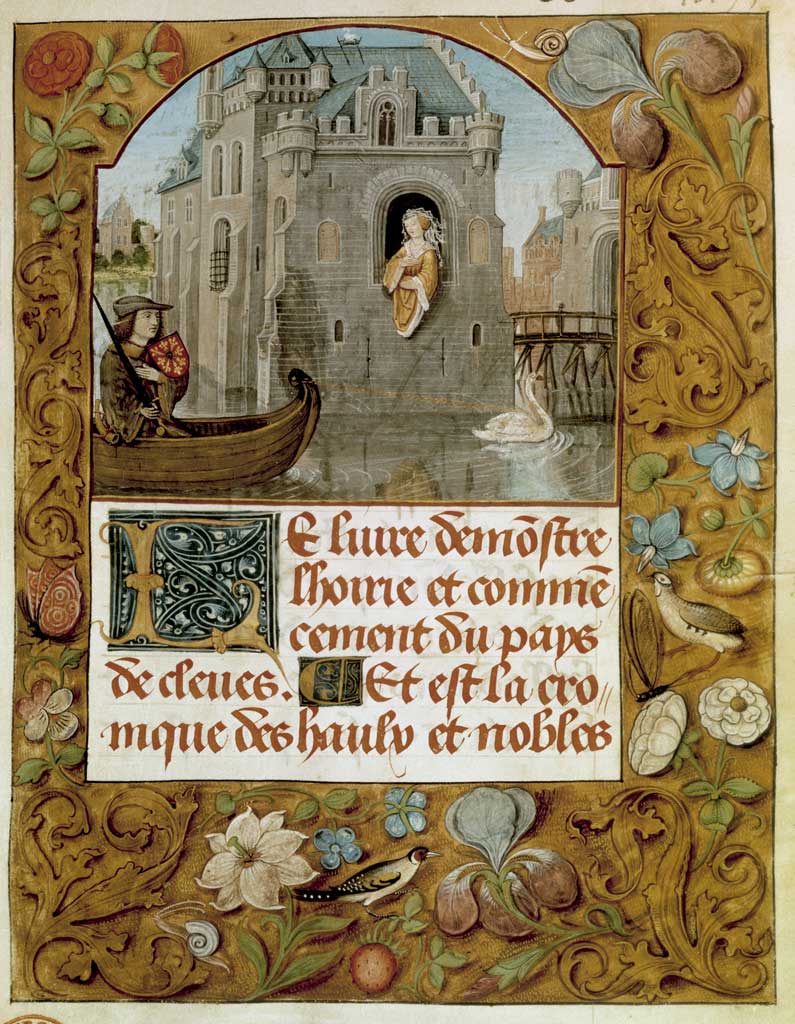 LE liure demōstre
lhoirie et commē
cement du pays
de cleues. Et est la cro//
nique des haulx et nobles